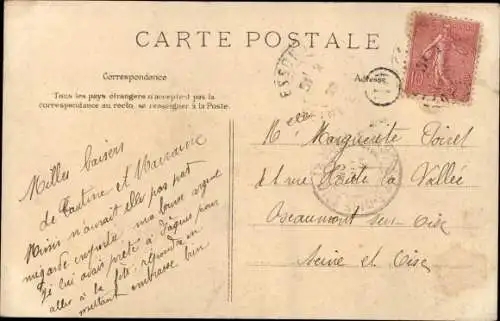 CARTE POSTALE
Correspondance
Tous les pays étrangers n'acceptent pas la
correspondance au recto, se renseigner à la Poste.
Adresse
ESSONN
10
Milles baisers
de Tantine et Marraine
Mimi n'aurait elle pas pet
regardé ma bourse argent
que je lui avais prêté à Pâques pour
aller à la fête; répondre en
mettant embrasse bien
Mlle Marguerite Poiret
21 rue Haute la Vallée
Beaumont sur Oise
Seine et Oise